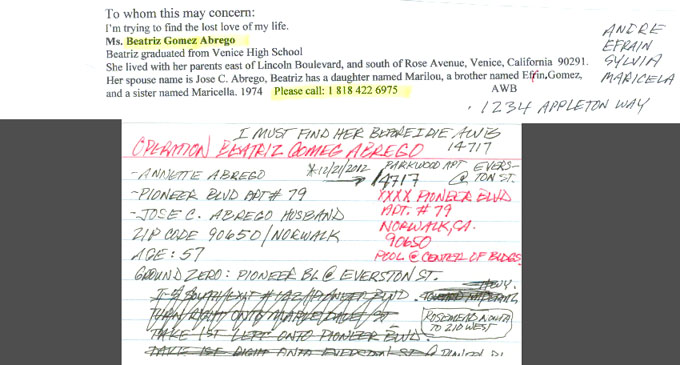 To whom this may concern:
I'm trying to find the lost love of my life.
Ms. Beatriz Gomez Abrego
Beatriz graduated from Venice High School
She lived with her parents east of Lincoln Boulevard, and south of Rose Avenue, Venice, California 90291.
Her spouse name is Jose C. Abrego, Beatriz has a daughter named Marilou, a brother named Efrin, Gomez,
and a sister named Maricella. 1974 Please call: 1 818 422 6975 AWB
ANDRE
EFRAIN
SYLVIA
MARICELA
1234 APPLETON WAY
I MUST FIND HER BEFORE I DIE AWB
OPERATION BEATRIZ GOMEG ABREGO 14717
-ANNETTE ABREGO *12/21/2012 PARKWOOD APT EVERS-
14717 @ TON ST.
-PIONEER BLVD APT # 79
-JOSE C. ABREGO HUSBAND
ZIP CODE 90650/NORWALK
AGE: 57
XXXX PIONEER BLVD
APT. # 79
NORWALK, CA.
90650
POOL @ CENTER OF BLDGS
GROUND ZERO: PIONEER BL @ EVERSTON ST.
TURN RIGHT ONTO
TAKE 1ST LEFT ONTO PIONEER BLVD.
TAKE 1ST RIGHT ONTO EVERSTON ST @
HWY.
ROSEMEAD NORTH
TO 210 WEST